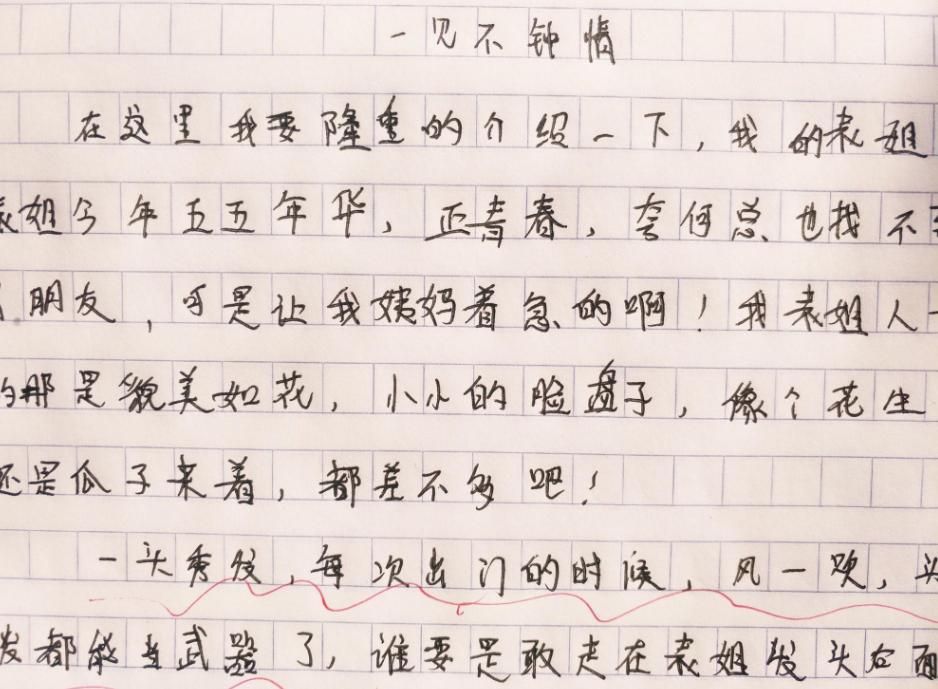 一见不钟情
在这里我要隆重的介绍一下，我的表姐
表姐今年五五年华，正青春，奈何总也找不到
朋友，可是让我姨妈着急的啊！我表姐人
的那是貌美如花，小小的脸盘子，像个花生
还是瓜子来着，都差不多吧！
一头秀发，每次出门的时候，风一吹，头
发都能当武器了，谁要是敢走在表姐发头右面